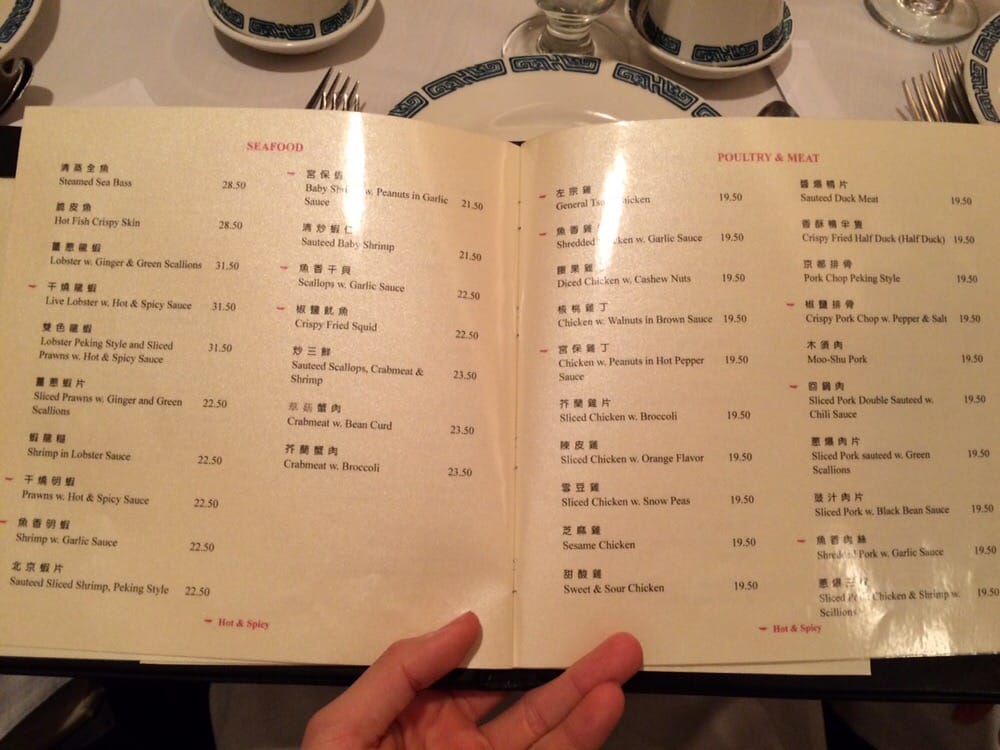 SEAFOOD
清蒸全魚
Steamed Sea Bass 28.50
脆皮魚
Hot Fish Crispy Skin 28.50
薑蔥龍蝦
Lobster w. Ginger & Green Scallions 31.50
干燒龍蝦
Live Lobster w. Hot & Spicy Sauce 31.50
雙色龍蝦
Lobster Peking Style and Sliced 31.50
Prawns w. Hot & Spicy Sauce
薑蔥蝦片
Sliced Prawns w. Ginger and Green 22.50
Scallions
蝦龍糊
Shrimp in Lobster Sauce 22.50
干燒明蝦
Prawns w. Hot & Spicy Sauce 22.50
魚香明蝦
Shrimp w. Garlic Sauce 22.50
北京蝦片
Sauteed Sliced Shrimp, Peking Style 22.50
宮保蝦
Baby Shrimp w. Peanuts in Garlic 21.50
Sauce
清炒蝦仁
Sauteed Baby Shrimp 21.50
魚香干貝
Scallops w. Garlic Sauce 22.50
椒鹽魷魚
Crispy Fried Squid 22.50
炒三鮮
Sauteed Scallops, Crabmeat & 23.50
Shrimp
草菇蟹肉
Crabmeat w. Bean Curd 23.50
芥蘭蟹肉
Crabmeat w. Broccoli 23.50
Hot & Spicy
POULTRY & MEAT
左宗雞
General Tso's Chicken 19.50
魚香雞
Shredded Chicken w. Garlic Sauce 19.50
腰果雞
Diced Chicken w. Cashew Nuts 19.50
核桃雞丁
Chicken w. Walnuts in Brown Sauce 19.50
宮保雞丁
Chicken w. Peanuts in Hot Pepper 19.50
Sauce
芥蘭雞片
Sliced Chicken w. Broccoli 19.50
陳皮雞
Sliced Chicken w. Orange Flavor 19.50
雪豆雞
Sliced Chicken w. Snow Peas 19.50
芝麻雞
Sesame Chicken 19.50
甜酸雞
Sweet & Sour Chicken 19.50
醬爆鴨片
Sauteed Duck Meat 19.50
香酥鴨半隻
Crispy Fried Half Duck (Half Duck) 19.50
京都排骨
Pork Chop Peking Style 19.50
椒鹽排骨
Crispy Pork Chop w. Pepper & Salt 19.50
木須肉
Moo-Shu Pork 19.50
回鍋肉
Sliced Pork Double Sauteed w. 19.50
Chili Sauce
蔥爆肉片
Sliced Pork sauteed w. Green 19.50
Scallions
豉汁肉片
Sliced Pork w. Black Bean Sauce 19.50
魚香肉絲
Shredded Pork w. Garlic Sauce 19.50
蔥爆三樣
Sliced Pork Chicken & Shrimp w. 19.50
Scillions
Hot & Spicy